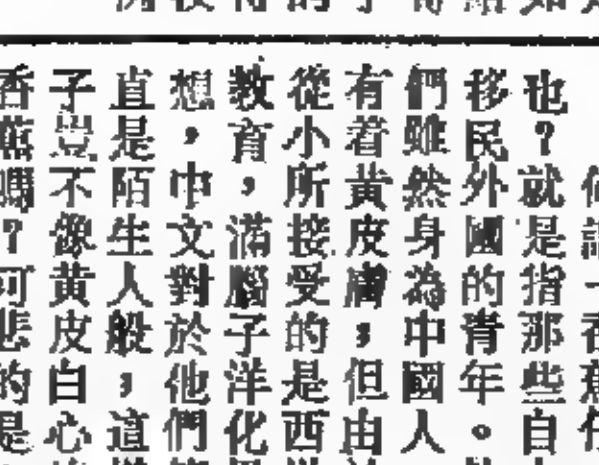 也？就是指那些自
移民外國的青年。
們雖然身為中國人
有着黃皮膚，但由
從小所接受的是西
教育，滿腦子洋化
想，中文對於他們
直是陌生人般，這
子豈不像黃皮白心
香蕉嗎？可悲的是